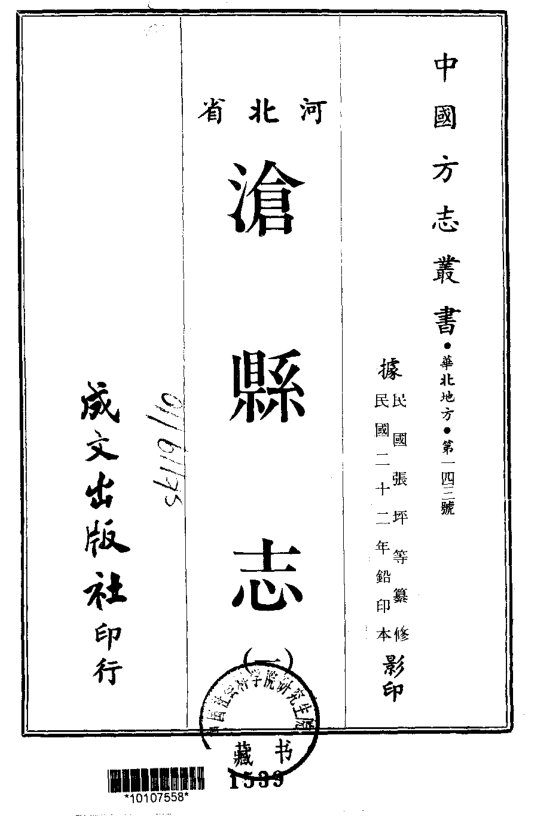 中國方志叢書•華北地方•第一四三號
據民國張坪等纂修
民國二十二年鉛印本影印
河北省
滄縣志
(一)
成文出版社印行
院研究生院
藏书
1539
*10107558*